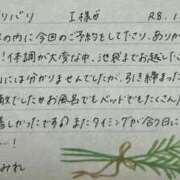 リバリ I様が R8.1
の内に今回のご予約をしてたさり、ありか
!体調が大変な中、池袋までお越しく
には分かりませんでしたが、引き締まった
敵でしたがお風呂でもベッドでもたくさん
喜しかったです♪またタイミングが合う日に
みれ